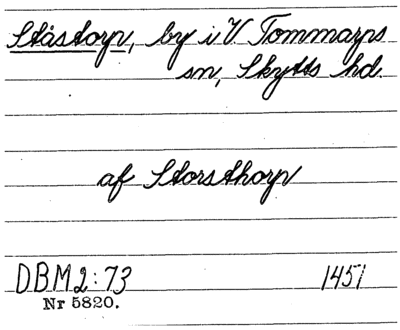 Ståstorp, by i V Tommarps
sn, Skytts hd.
af Storsthorp
DBM2:73 1451
Nr 5820.